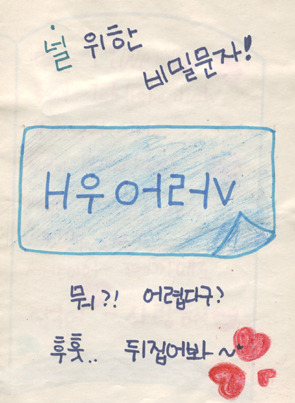 널 위한
비밀문자!
H우어러v
뮈?! 어렵다구?
후훗.. 뒤집어봐~